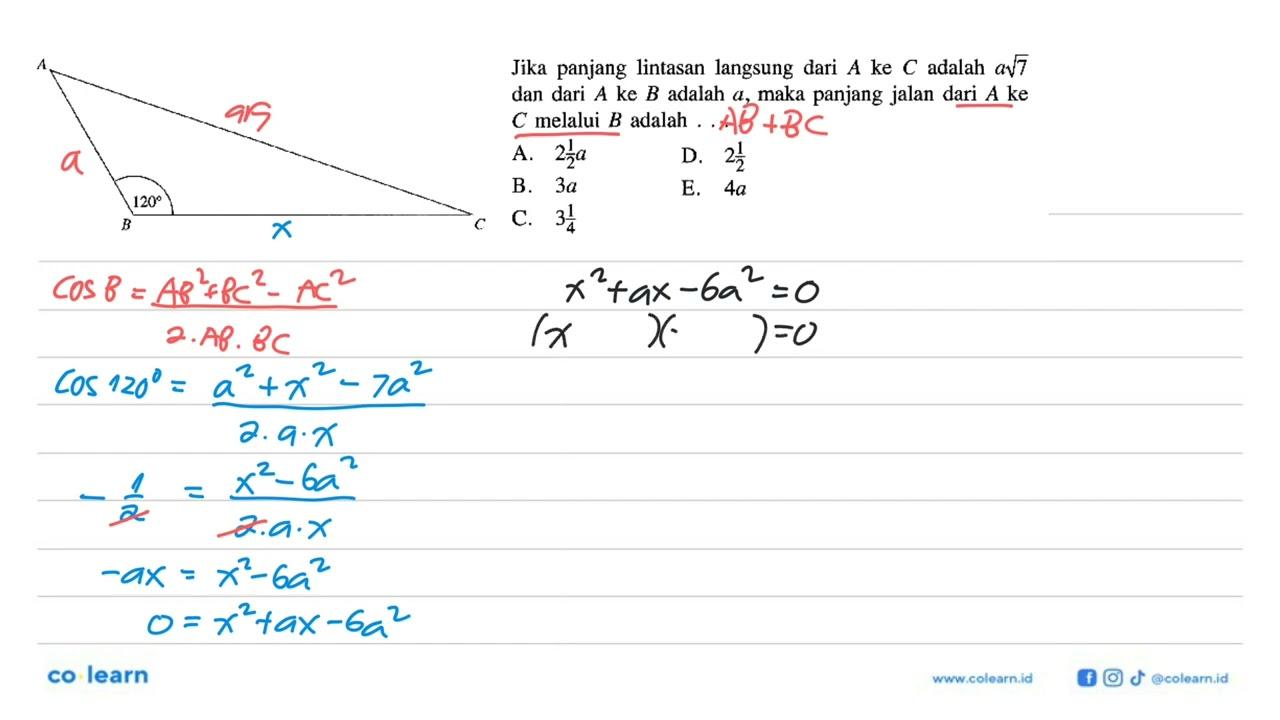 A
a√7
a
120°
B
x
C
Jika panjang lintasan langsung dari A ke C adalah a√7
dan dari A ke B adalah a, maka panjang jalan dari A ke
C melalui B adalah . . . AB + BC
A. 2 1/2 a
B. 3a
C. 3 1/4
D. 2 1/2
E. 4a
cos B = (AB² + BC² - AC²) / (2 . AB . BC)
cos 120° = (a² + x² - 7a²) / (2 . a . x)
- 1/2 = (x² - 6a²) / (2 . a . x)
-ax = x² - 6a²
0 = x² + ax - 6a²
x² + ax - 6a² = 0
(x )( ) = 0
co learn
www.colearn.id
@colearn.id